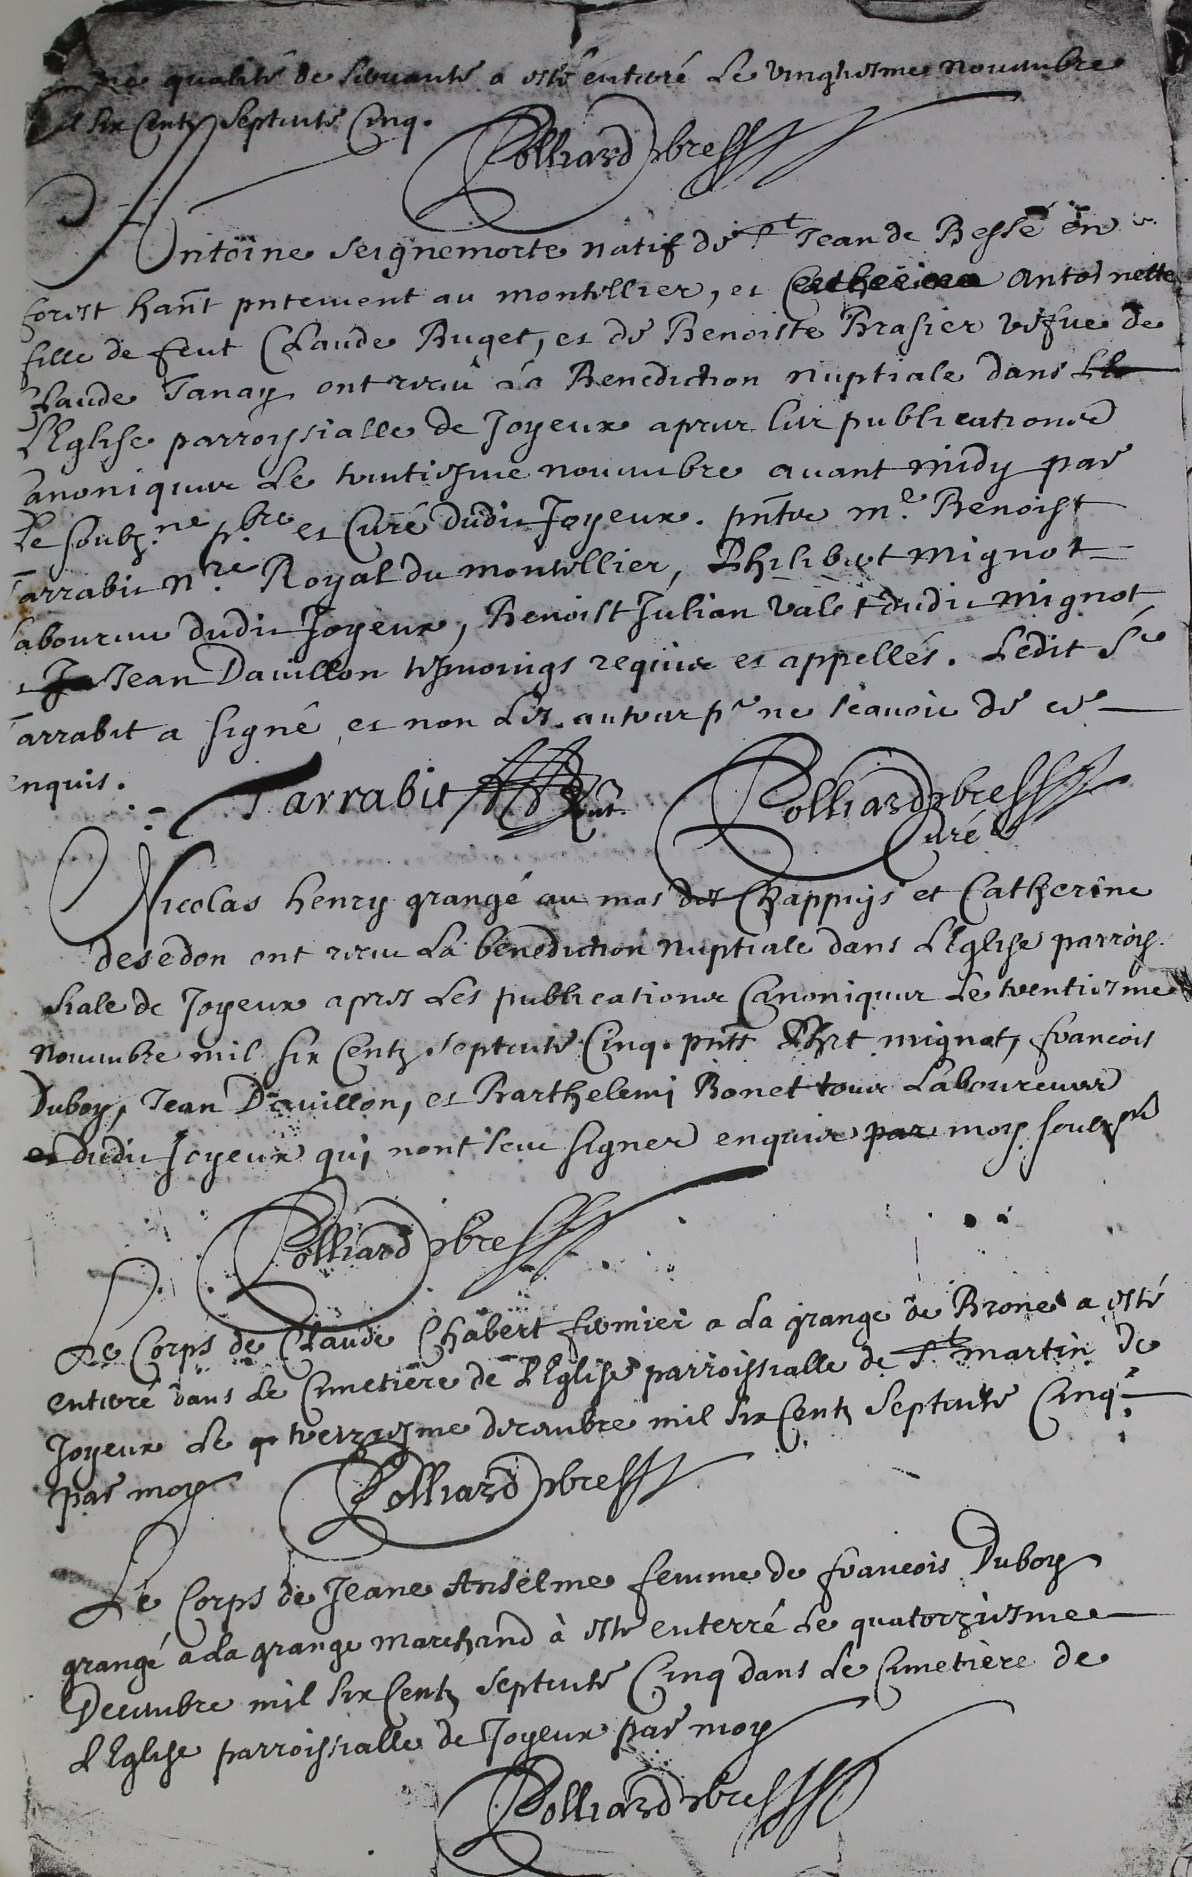 qualité de servante a esté enterré Le vingtiesme novembre
six Centz septente Cinq.
Polliard pbre
Antoine Seignemorte natif de St Jean de Besse en
forest hant pntement au montellier, et Catherine Antoinette
fille de feut Claude Buget, et de Benoiste Brasier vefue de
Claude Janay ont receu la Benediction nuptiale dans Le
L'Eglise parroyssialle de Joyeux apres les publications
Canoniques Le trentiesme novembre avant midy par
Le soubz.ne p.bre et Curé dudit Joyeux. pnts m.e Benoist
Tarrabit N.re Royal du montellier, Philibert mignot
Laboureur dudit Joyeux, Benoist Julian valet dudit mignot
et Je Jean Davillon tesmoings requis et appellés. Ledit Sr
Tarrabit a signé, et non les autres pr ne scavoir de ce
enquis.
Tarrabit Polliard pbre
Curé
Nicolas henry grangé au mas des Chappuys et Catherine
desedon ont receu La benediction nuptiale dans L'Eglise parroys
siale de Joyeux apres Les publications Canoniques Le trentiesme
Novembre mil six Centz septente Cinq. pnts Pht mignot, francois
Duboy, Jean Davillon, et Barthelemi Bonet tous Laboureurs
et dudit Joyeux qui nont sceu signer enquis par moy soubzné
Polliard pbre
Le Corps de Claude Chabert fermier a La grange de Brones a esté
enterré dans Le Cimetière de L'Eglise parroissialle de St martin de
Joyeux Le q treiziesme decembre mil six Centz septente Cinq
par moy Polliard pbre
Le Corps de Jeane Anselme femme de francois Duboy
grangé a La grange marchand à esté enterré Le quatorziesme
Decembre mil six Centz septente Cinq dans Le Cimetière de
L'Eglise parroissialle de Joyeux par moy
Polliard pbre